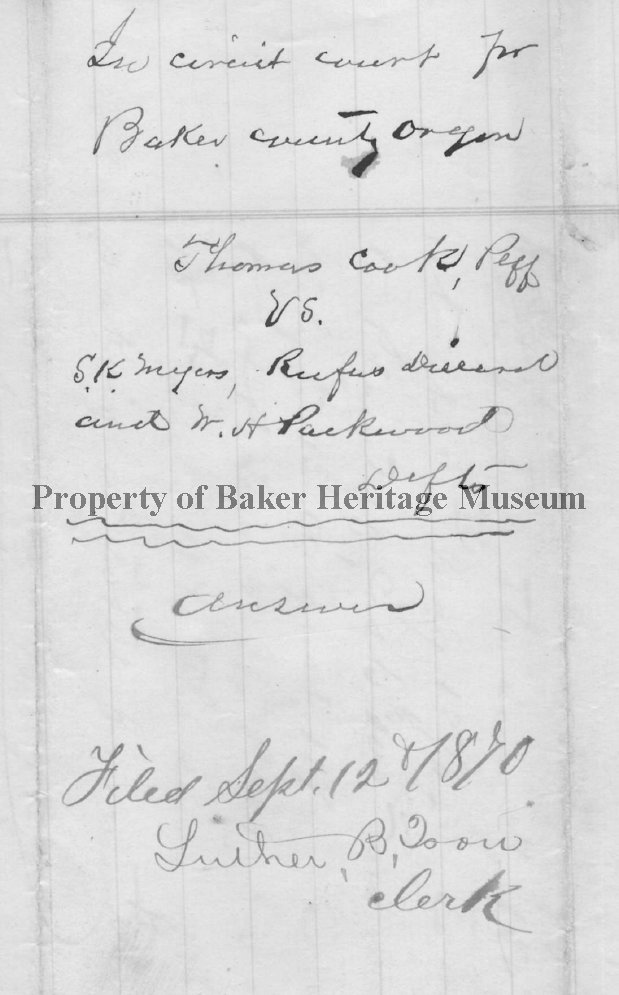 In circuit court for
Baker county Oregon
Thomas Cook, Peff
VS.
S.K. Myers, Rufus
and W. H Packwood
Defts
Property of Baker Heritage Museum
Answer
Filed Sept. 12th 1870
Luther, B, Ison
clerk